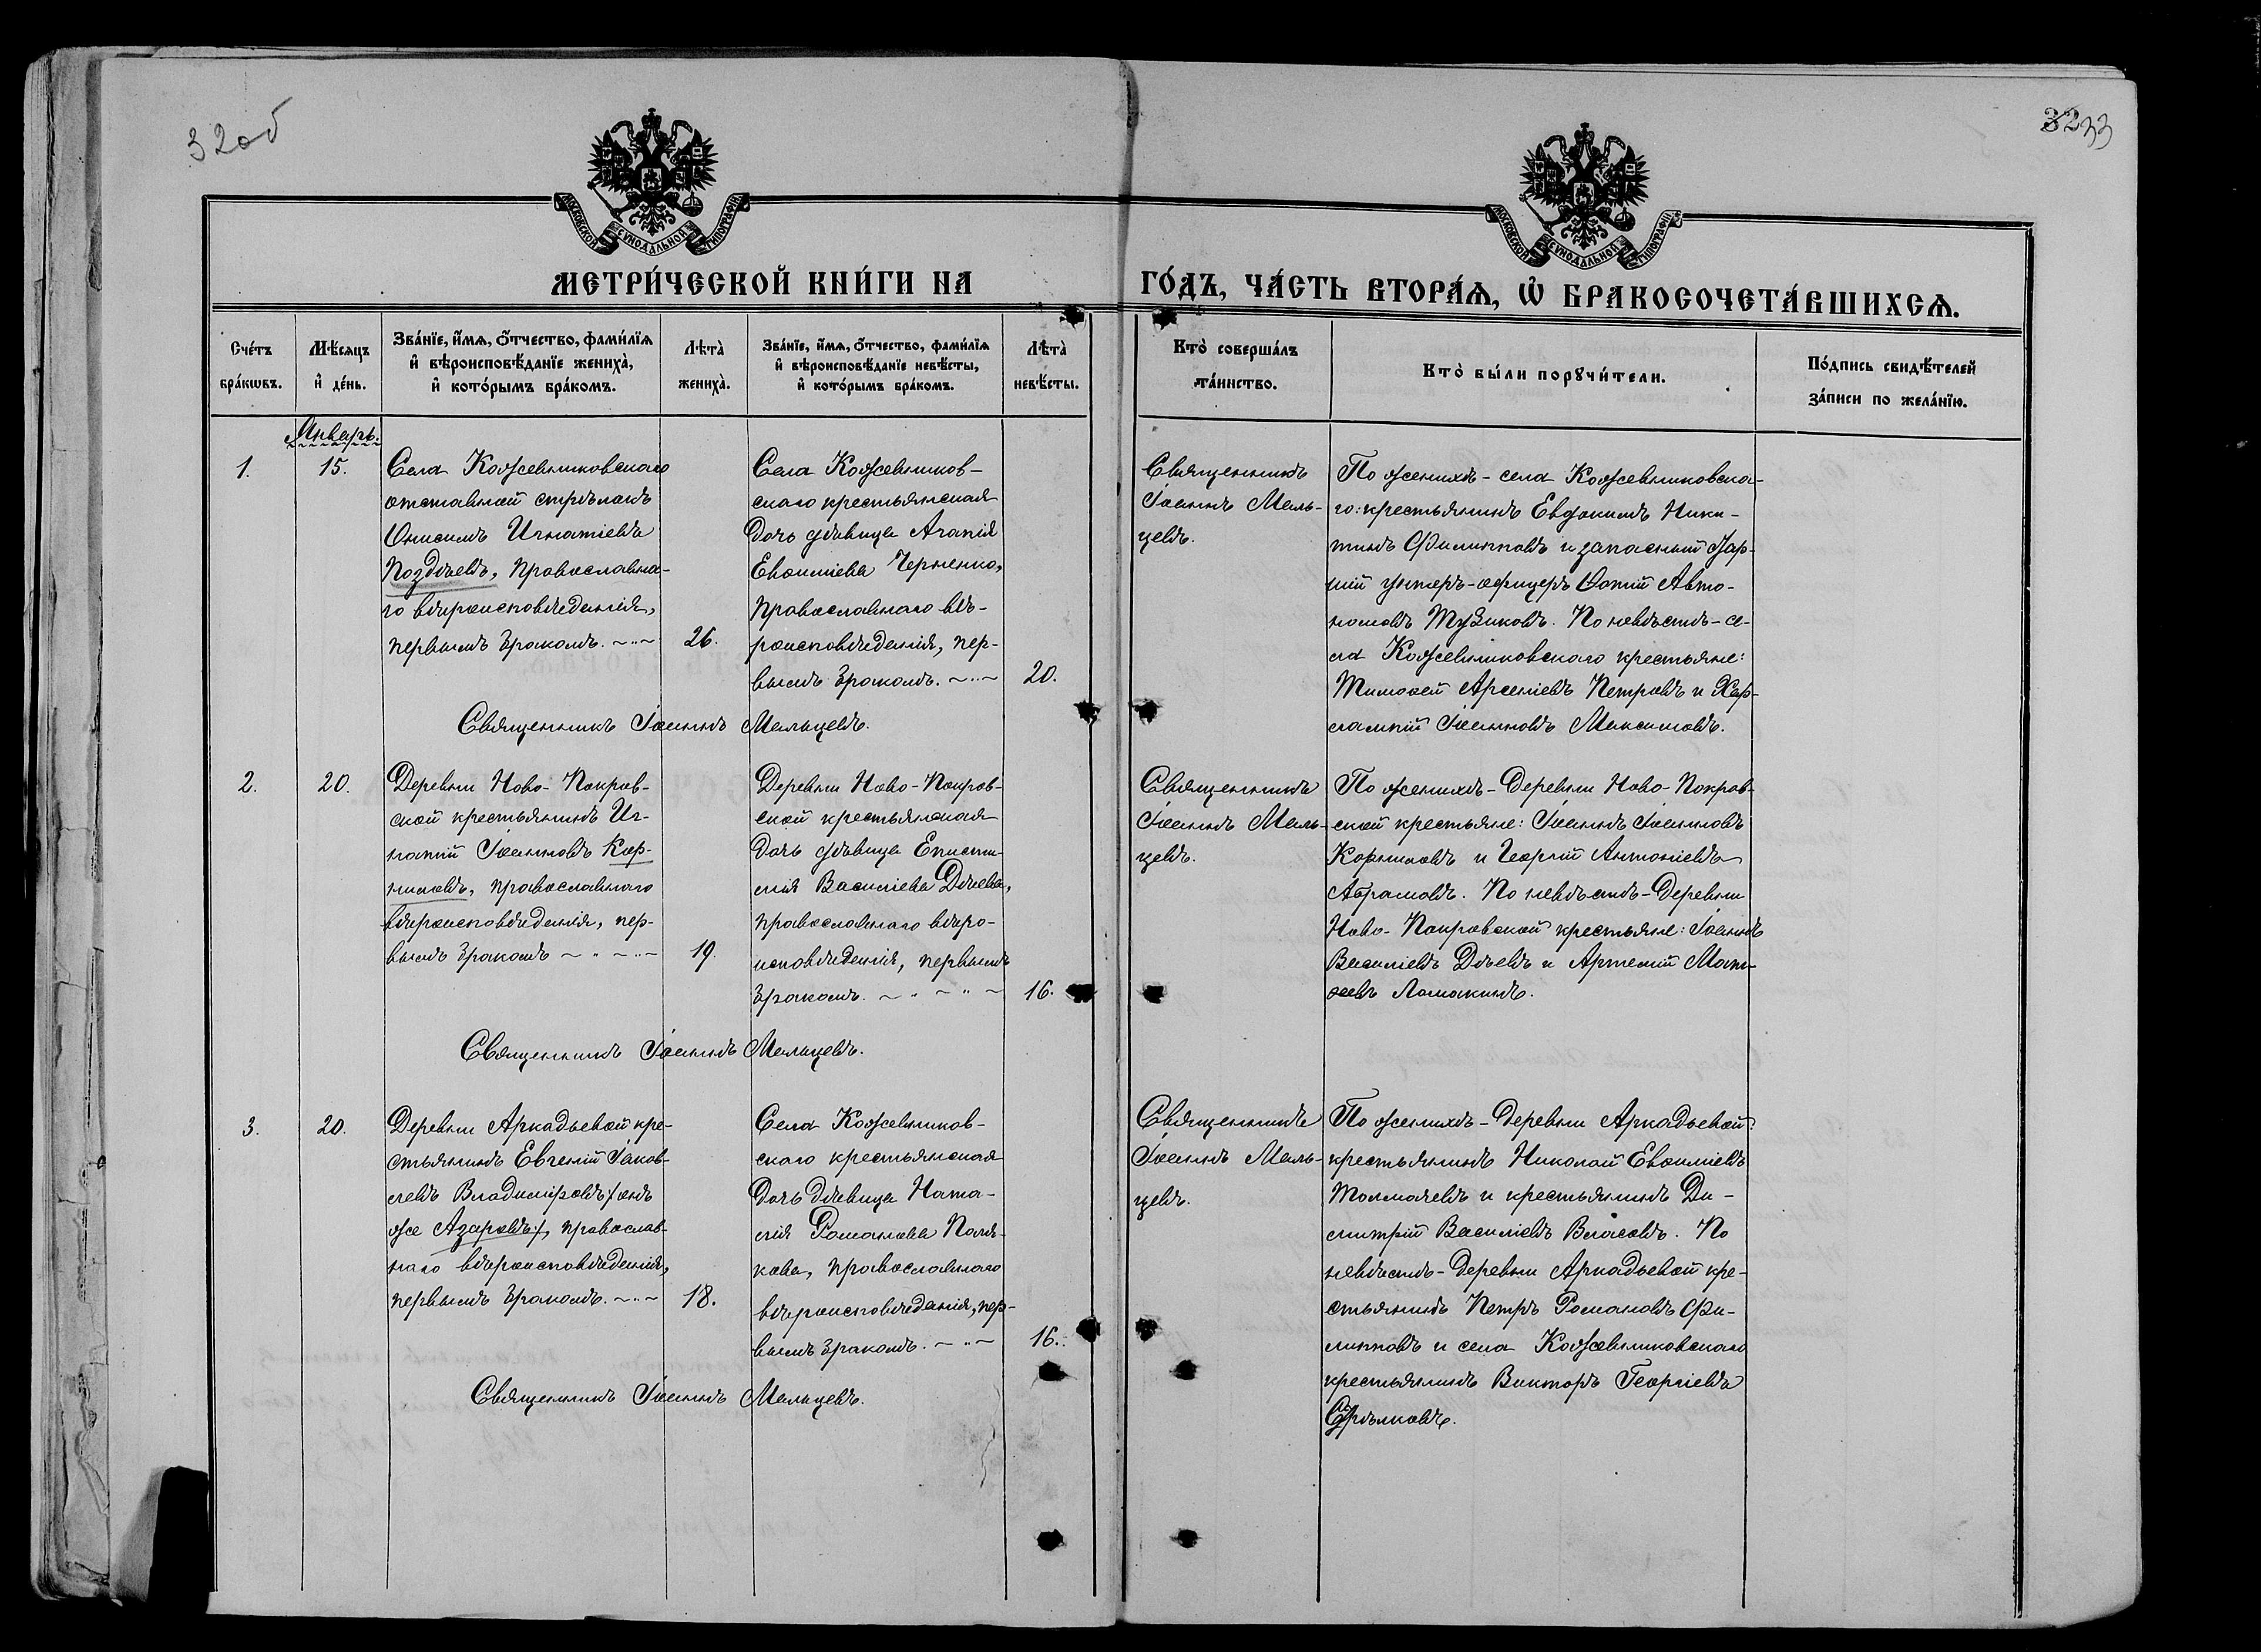 32об
3233
МОСКОВСКОЙ СѴНОДАЛЬНОЙ ТИПОГРАФІИ
МОСКОВСКОЙ СѴНОДАЛЬНОЙ ТИПОГРАФІИ
МЕТРИ́ЧЕСКОЙ КНИ́ГИ НА
ГО́ДЪ, ЧА́СТЬ ВТОРА́Ѧ, Ѡ҆ БРАКОСОЧЕТА́ВШИХСѦ.
Сче́тъ
бра́кѡвъ.
Мѣ́сяцъ
и҆ де́нь.
Зва́нїе, и҆́мѧ, ѻ҆́тчество, фами́лїѧ
и҆ вѣроисповѣ́данїе жениха̀,
и҆ кото́рымъ бра́комъ.
Лѣта̀
жениха̀.
Зва́нїе, и҆́мѧ, ѻ҆́тчество, фами́лїѧ
и҆ вѣроисповѣ́данїе невѣ́сты,
и҆ кото́рымъ бра́комъ.
Лѣта̀
невѣ́сты.
Кто̀ соверша́лъ
та́инство.
Кто̀ бы́ли порꙋчи́тели.
По́дпись свидѣ́телей
за́писи по жела́нїю.
Январь.
1.
15.
Села Кожевниковскаго
отставной стрѣлокъ
Онисимъ Игнатіевъ
Поздѣевъ, православна-
го вѣроисповѣданія,
первымъ бракомъ.
26.
Села Кожевников-
скаго крестьянская
дочь дѣвица Агапія
Евѳиміева Черненко,
православнаго вѣ-
роисповѣданія, пер-
вымъ бракомъ.
20.
Священникъ
Іоаннъ Маль-
цевъ.
По женихѣ - села Кожевниковска-
го: крестьянинъ Евдокимъ Ники-
тинъ Филипповъ и запасный стар-
шій унтеръ-офицеръ Фотій Авто-
номовъ Тузиковъ. По невѣстѣ - се-
ла Кожевниковскаго крестьяне:
Тимоѳей Арсеніевъ Петровъ и Хар-
лампій Іоанновъ Максимовъ.
Священникъ Іоаннъ Мальцевъ.
2.
20.
Деревни Ново-Покров-
ской крестьянинъ Иг-
натій Іоанновъ Кор-
ниловъ, православнаго
вѣроисповѣданія, пер-
вымъ бракомъ
19.
Деревни Ново-Покров-
ской крестьянская
дочь дѣвица Еписти-
мія Василіева Дѣева,
православнаго вѣро-
исповѣданія, первымъ
бракомъ.
16.
Священникъ
Іоаннъ Маль-
цевъ.
По женихѣ - деревни Ново-Покров-
ской крестьяне: Іоаннъ Іоанновъ
Корниловъ и Георгій Антоніевъ
Абрамовъ. По невѣстѣ - деревни
Ново-Покровской крестьяне: Іоаннъ
Василіевъ Дѣевъ и Артемій Мат-
ѳеевъ Ломакинъ.
Священникъ Іоаннъ Мальцевъ.
3.
20.
Деревни Аркадьевой кре-
стьянинъ Евгеній Іаков-
левъ Владиміровъ /:онъ
же Азаровъ:/, православ-
наго вѣроисповѣданія,
первымъ бракомъ.
18.
Села Кожевников-
скаго крестьянская
дочь дѣвица Ната-
лія Романова Поля-
кова, православнаго
вѣроисповѣданія, пер-
вымъ бракомъ.
16.
Священникъ
Іоаннъ Маль-
цевъ.
По женихѣ - деревни Аркадьевой:
крестьянинъ Николай Евѳиміевъ
Толмачевъ и крестьянинъ Ди-
митрій Василіевъ Власовъ. По
невѣстѣ - деревни Аркадьевой кре-
стьянинъ Петръ Романовъ Фи-
липповъ и села Кожевниковскаго
крестьянинъ Викторъ Георгіевъ
Стрѣлковъ.
Священникъ Іоаннъ Мальцевъ.